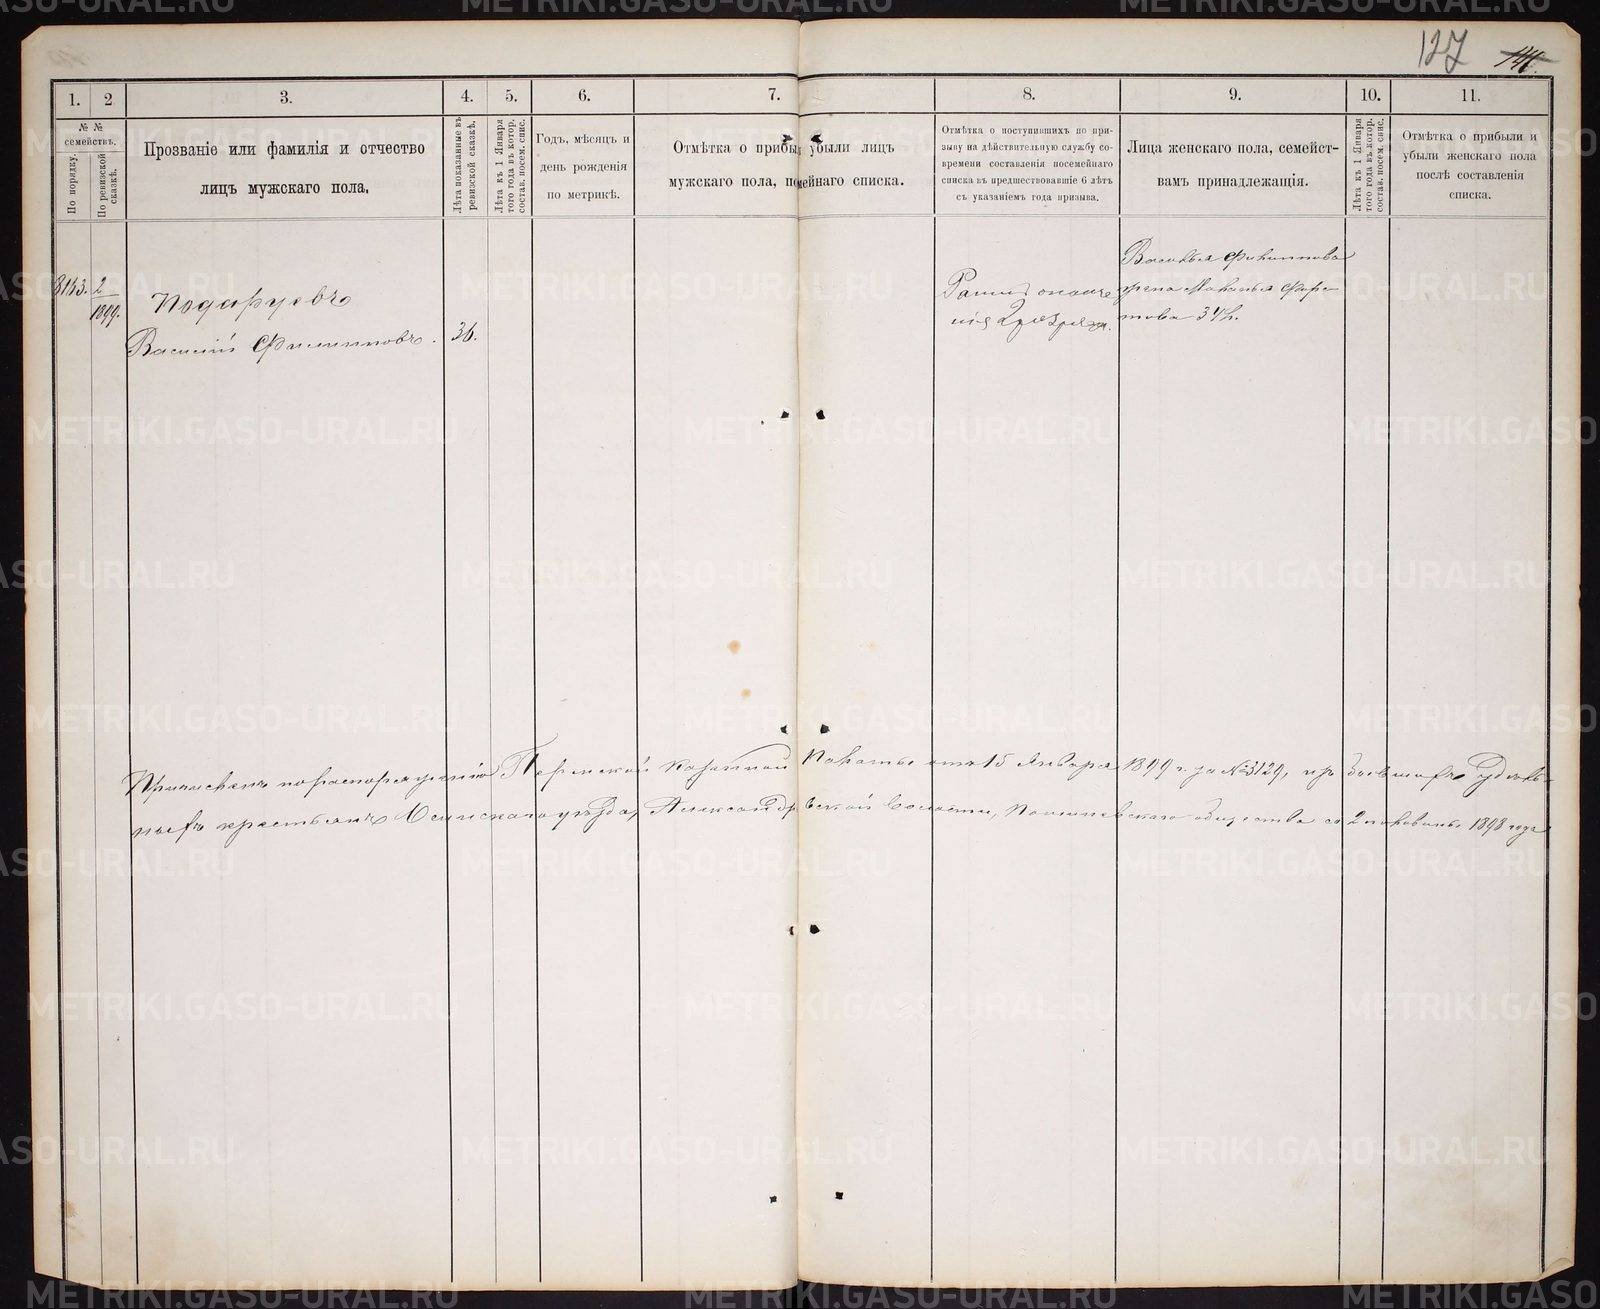 127
1.
2
3.
4.
5.
6.
7.
8.
9.
10.
11.
№ №
семействъ.
По порядку.
По ревизской
сказкѣ.
Прозваніе или фамилія и отчество
лицъ мужскаго пола,
Лѣта показанные въ
ревизской сказкѣ.
Лѣта къ 1 Января
того года въ котор.
состав. посем. спис.
Годъ, мѣсяцъ и
день рожденія
по метрикѣ.
Отмѣтка о прибы убыли лицъ
мужскаго пола, по мейнаго списка.
Отмѣтка о поступившихъ по при-
зыву на дѣйствительную службу со-
времени составленія посемейнаго
списка въ предшествовавшіе 6 лѣтъ
съ указаніемъ года призыва.
Лица женскаго пола, семейст-
вамъ принадлежащія.
Лѣта къ 1 Января
того года въ котор.
состав. посем. спис.
Отмѣтка о прибыли и
убыли женскаго пола
послѣ составленія
списка.
8143.
2
1899.
Подаруевъ
Василій Филипповъ.
36.
2 разряда.
Василья Филиппова
жена Маланья
34 л.
Причисленъ по распоряженію Пермской Казенной Палаты отъ 15 Января 1899 г. за № 3129, изъ бывшихъ Удѣль-
ныхъ крестьянъ Осинскаго уѣзда, Александровской Волости, общества со 2 половины 1898 года
METRIKI.GASO-URAL.RU